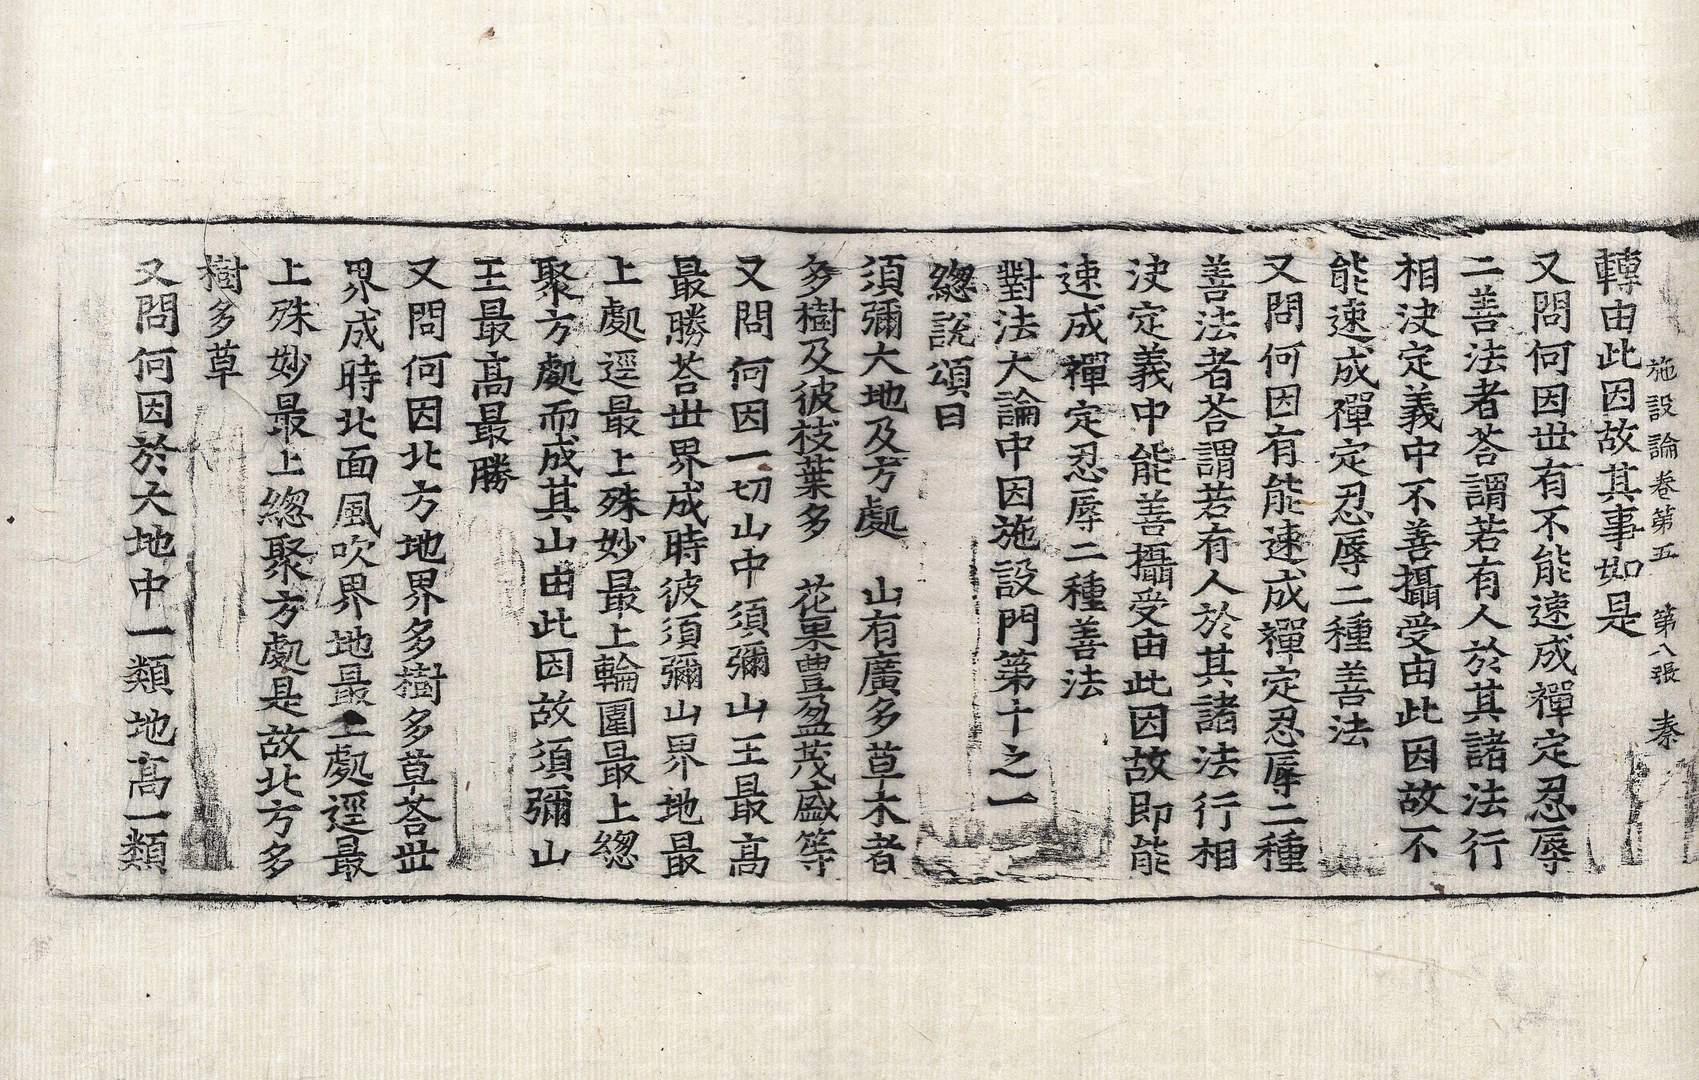 施設論卷第五　第八張　秦
轉由此因故其事如是
又問何因世有不能速成禪定忍辱
二善法者荅謂若有人於其諸法行
相決定義中不善攝受由此因故不
能速成禪定忍辱二種善法
又問何因有能速成禪定忍辱二種
善法者荅謂若有人於其諸法行相
決定義中能善攝受由此因故即能
速成禪定忍辱二種善法
對法大論中因施設門第十之一
緫說頌曰
須彌大地及方處　山有廣多草木者
多樹及彼枝葉多　花果豊盈茂盛等
又問何因一切山中須彌山王最高
最勝荅世界成時彼須彌山界地最
上處逕最上殊妙最上輪圍最上緫
聚方處而成其山由此因故須彌山
王最高最勝
又問何因北方地界多樹多草荅世
界成時北面風吹界地最上處逕最
上殊妙最上緫聚方處是故北方多
樹多草
又問何因於大地中一類地高一類